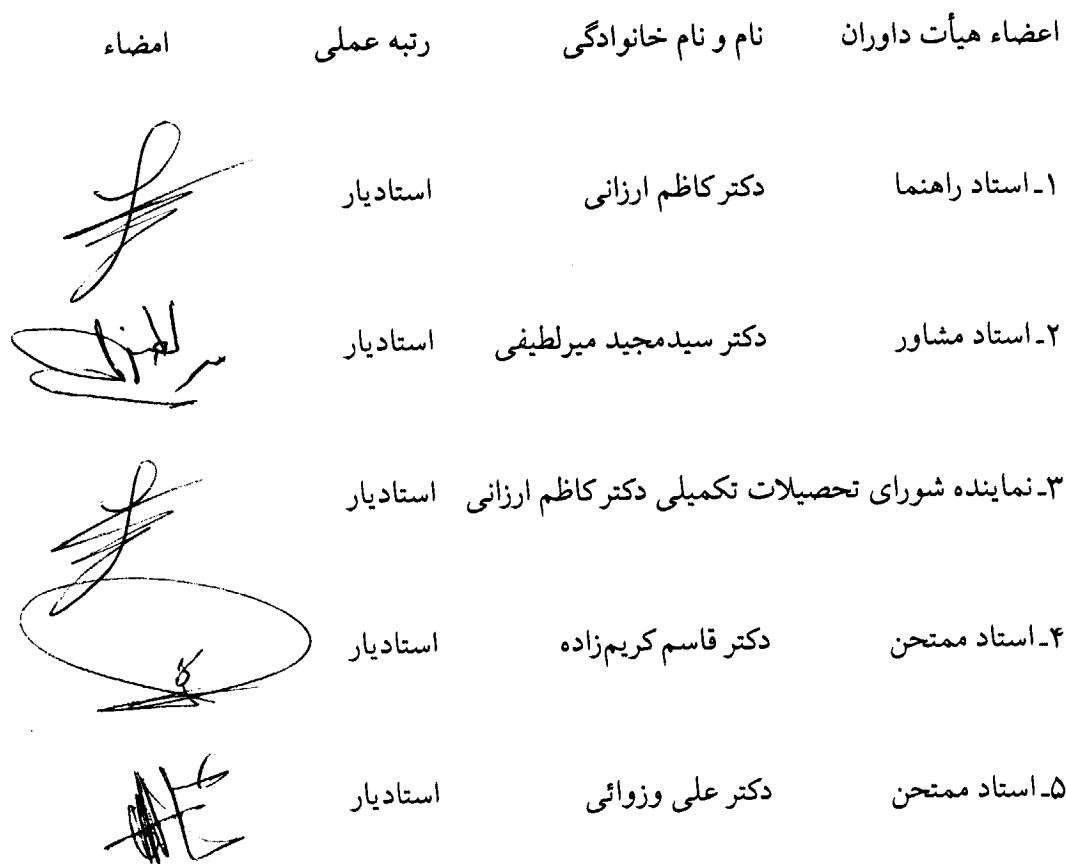 اعضاء هیأت داوران نام و نام خانوادگی رتبه عملی امضاء
۱ـ استاد راهنما دکتر کاظم ارزانی استادیار
۲ـ استاد مشاور دکتر سیدمجید میرلطیفی استادیار
۳ـ نماینده شورای تحصیلات تکمیلی دکتر کاظم ارزانی استادیار
۴ـ استاد ممتحن دکتر قاسم کریم‌زاده استادیار
۵ـ استاد ممتحن دکتر علی وزوائی استادیار